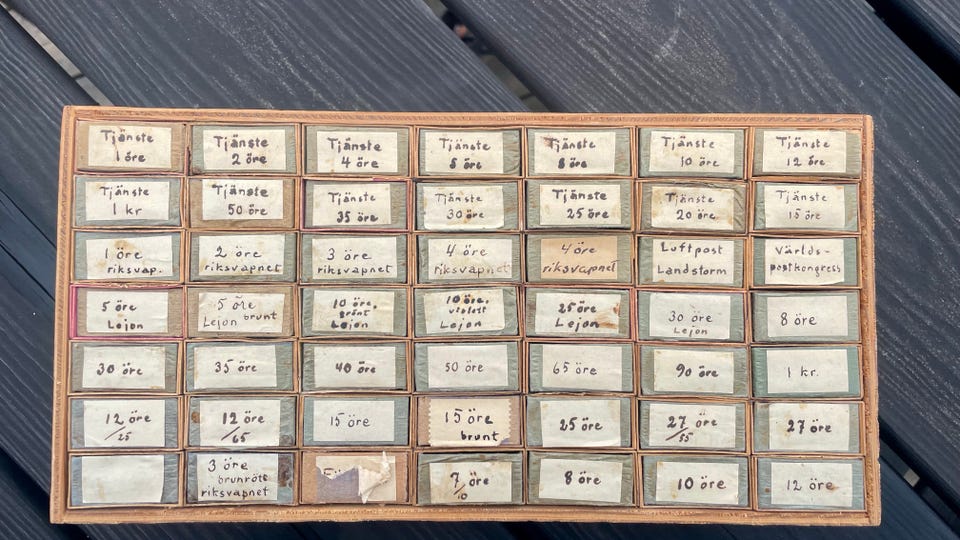 Tjänste
1 öre
Tjänste
2 öre
Tjänste
4 öre
Tjänste
5 öre
Tjänste
8 öre
Tjänste
10 öre
Tjänste
12 öre
Tjänste
1 kr
Tjänste
50 öre
Tjänste
35 öre
Tjänste
30 öre
Tjänste
25 öre
Tjänste
20 öre
Tjänste
15 öre
1 öre
riksvap.
2 öre
riksvapnet
3 öre
riksvapnet
4 öre
riksvapnet
4 öre
riksvapnet
Luftpost
Landstorm
världs-
postkongress
5 öre
Lejon
5 öre
Lejon brunt
10 öre,
grönt
Lejon
10 öre,
violett
Lejon
25 öre
Lejon
30 öre
Lejon
8 öre
30 öre
35 öre
40 öre
50 öre
65 öre
90 öre
1 kr.
12 öre
/25
12 öre
/65
15 öre
15 öre
brunt
25 öre
27 öre
/55
27 öre
3 öre
brunrött
riksvapnet
7 öre
/10
8 öre
10 öre
12 öre